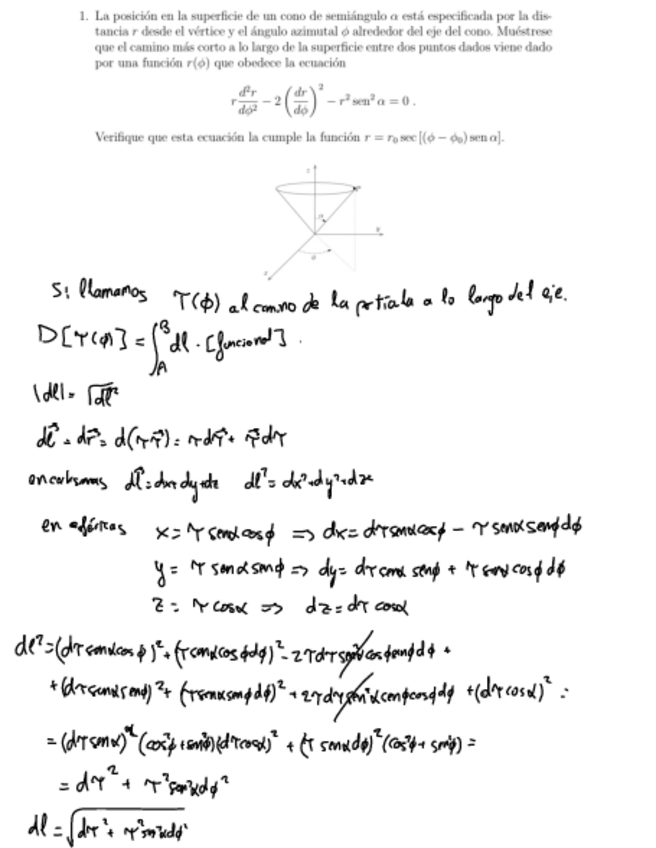 1. La posición en la superficie de un cono de semiángulo α está especificada por la dis-
tancia r desde el vértice y el ángulo azimutal ϕ alrededor del eje del cono. Muéstrese
que el camino más corto a lo largo de la superficie entre dos puntos dados viene dado
por una función r(ϕ) que obedece la ecuación
r d²r/dϕ² − 2 (dr/dϕ)² − r² sen² α = 0 .
Verifique que esta ecuación la cumple la función r = r₀ sec [(ϕ − ϕ₀) sen α].
Si llamamos r(ϕ) al camino de la partícula a lo largo del eje.
D[r(ϕ)] = ∫_A^B dl · [funcional] .
|dl| = √dl²
dl⃗ = dr⃗ = d(r r⃗) = r dr⃗ + r⃗ dr
dl⃗ = dx+dy+dz dl² = dx²+dy²+dz
en esféricas x = r senα cosϕ ⇒ dx = dr senα cosϕ − r senα senϕ dϕ
y = r senα senϕ ⇒ dy = dr senα senϕ + r senα cosϕ dϕ
z = r cosα ⇒ dz = dr cosα
dl² = (dr senα cosϕ)² + (r senα cosϕ dϕ)² − 2r dr sen²α cosϕ senϕ dϕ +
+ (dr senα senϕ)² + (r senα senϕ dϕ)² + 2r dr sen²α senϕ cosϕ dϕ + (dr cosα)² =
= (dr senα)² (cos²ϕ + sen²ϕ)(dr cosα)² + (r senα dϕ)² (cos²ϕ + sen²ϕ) =
= dr² + r² sen²α dϕ²
dl = √dr² + r² sen²α dϕ²